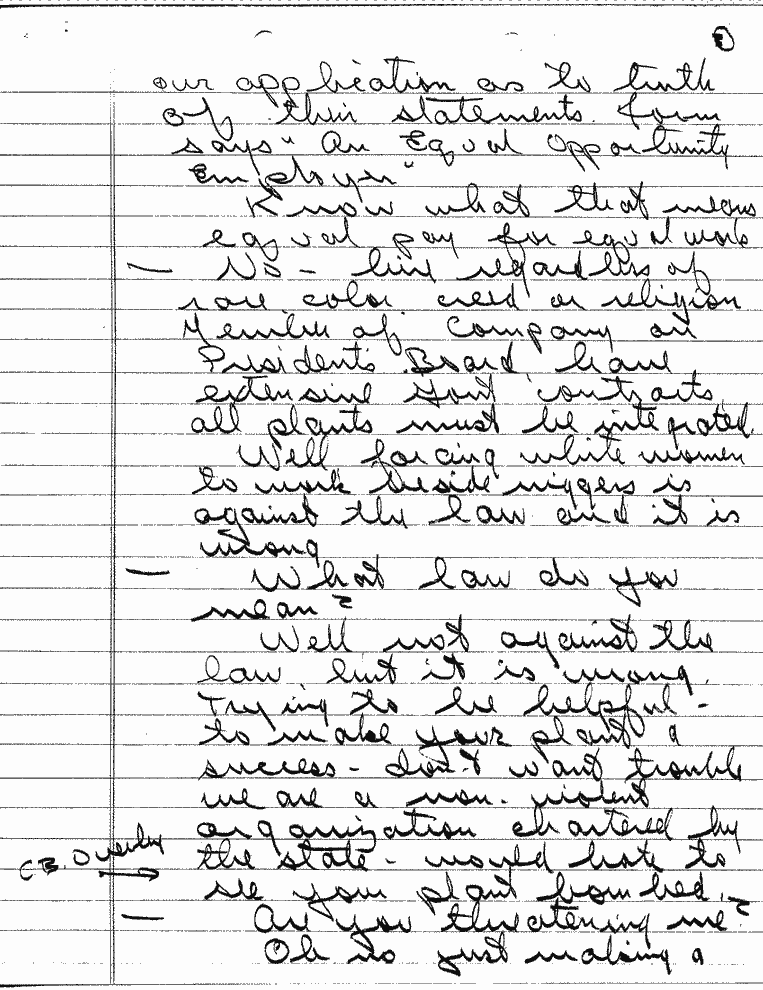 our application as to truth
of their statements. Form
says "An Equal Opportunity
Employer"
Know what that means
equal pay for equal work
— No - hire regardless of
race color creed or religion
Member of Company on
Presidents Board, have
extensive Govt contracts
all plants must be integrated.
Well forcing white women
to work beside niggers is
against the law and it is
wrong
— What law do you
mean?
Well not against the
law but it is wrong.
Trying to be helpful -
to make your plant a
success - don't want trouble
we are a non-violent
organization chartered by
C.B. →
the state - would hate to
see your plant bombed.
— Are you threatening me?
Oh no just making a